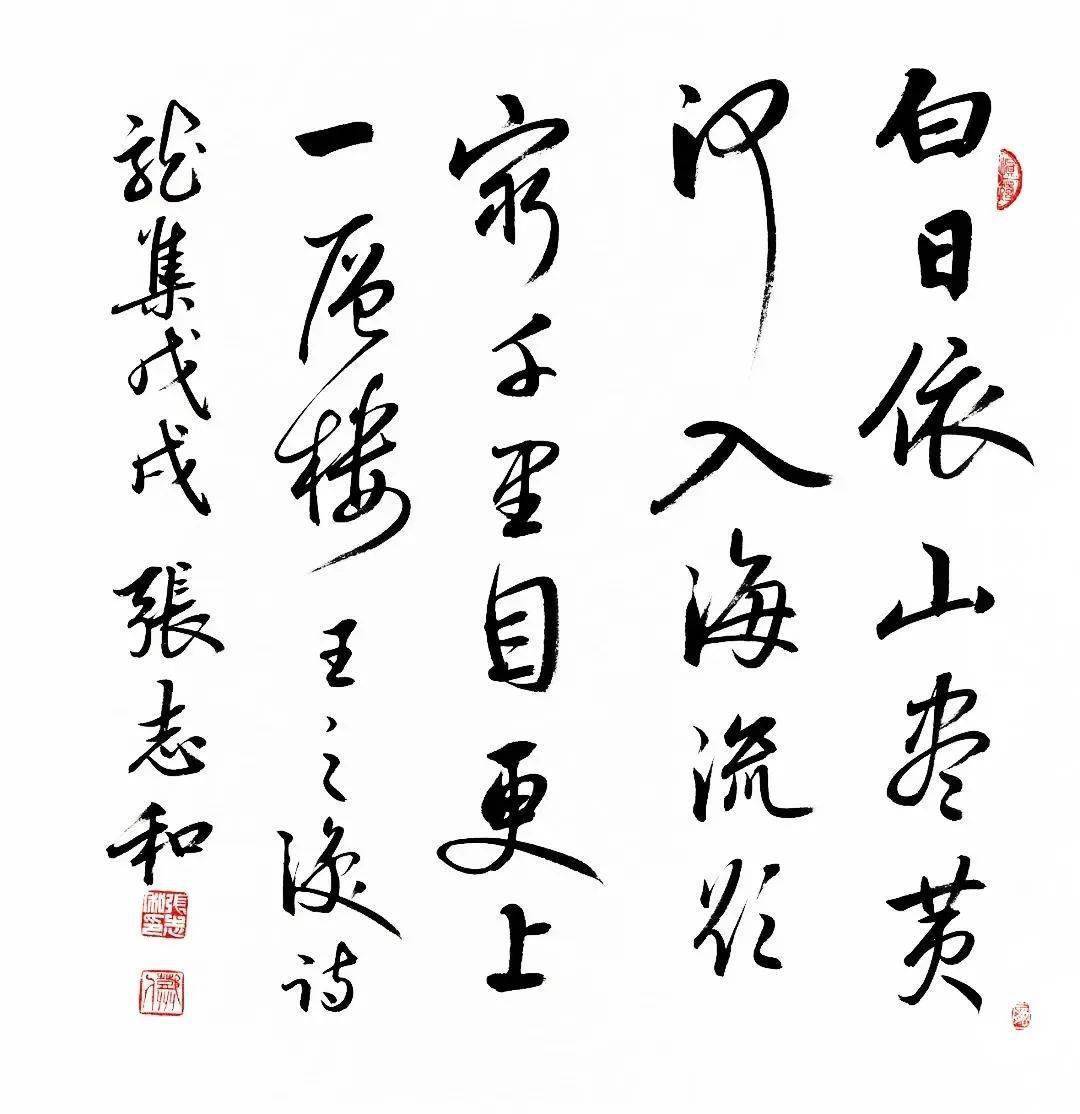 白日依山尽黄
河入海流欲
穷千里目更上
一層楼 王之涣诗
龍集戊戌 張志和
張志和印